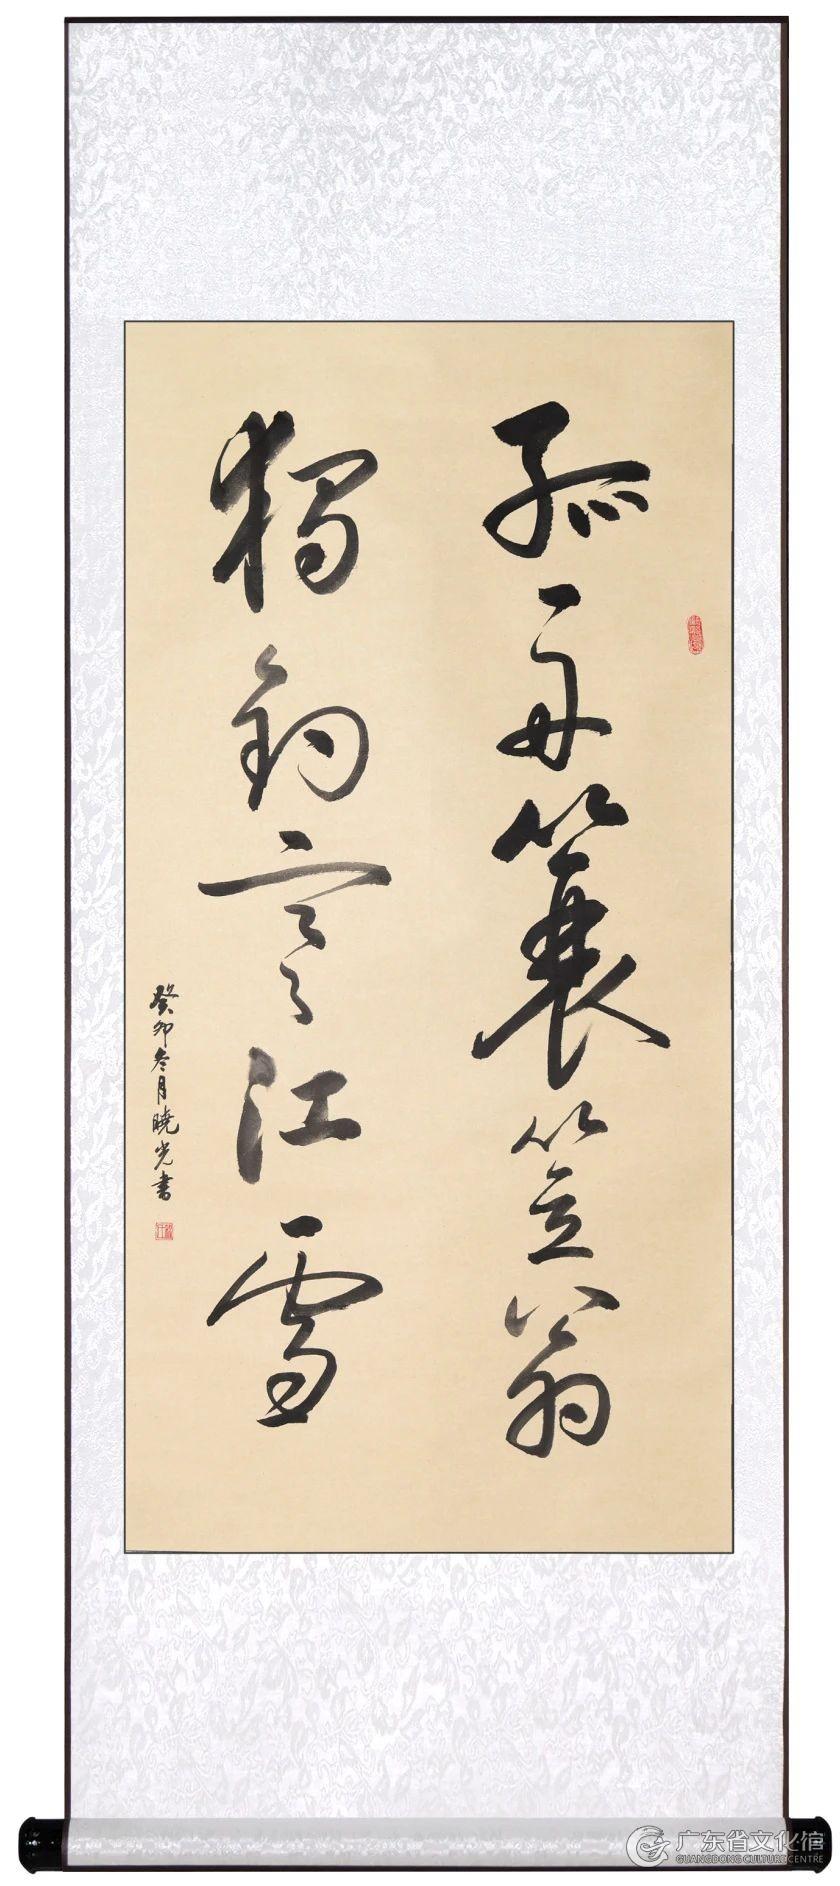 孤舟蓑笠翁
獨釣寒江雪
癸卯冬月曉光書
广东省文化馆
GUANGDONG CULTURE CENTRE